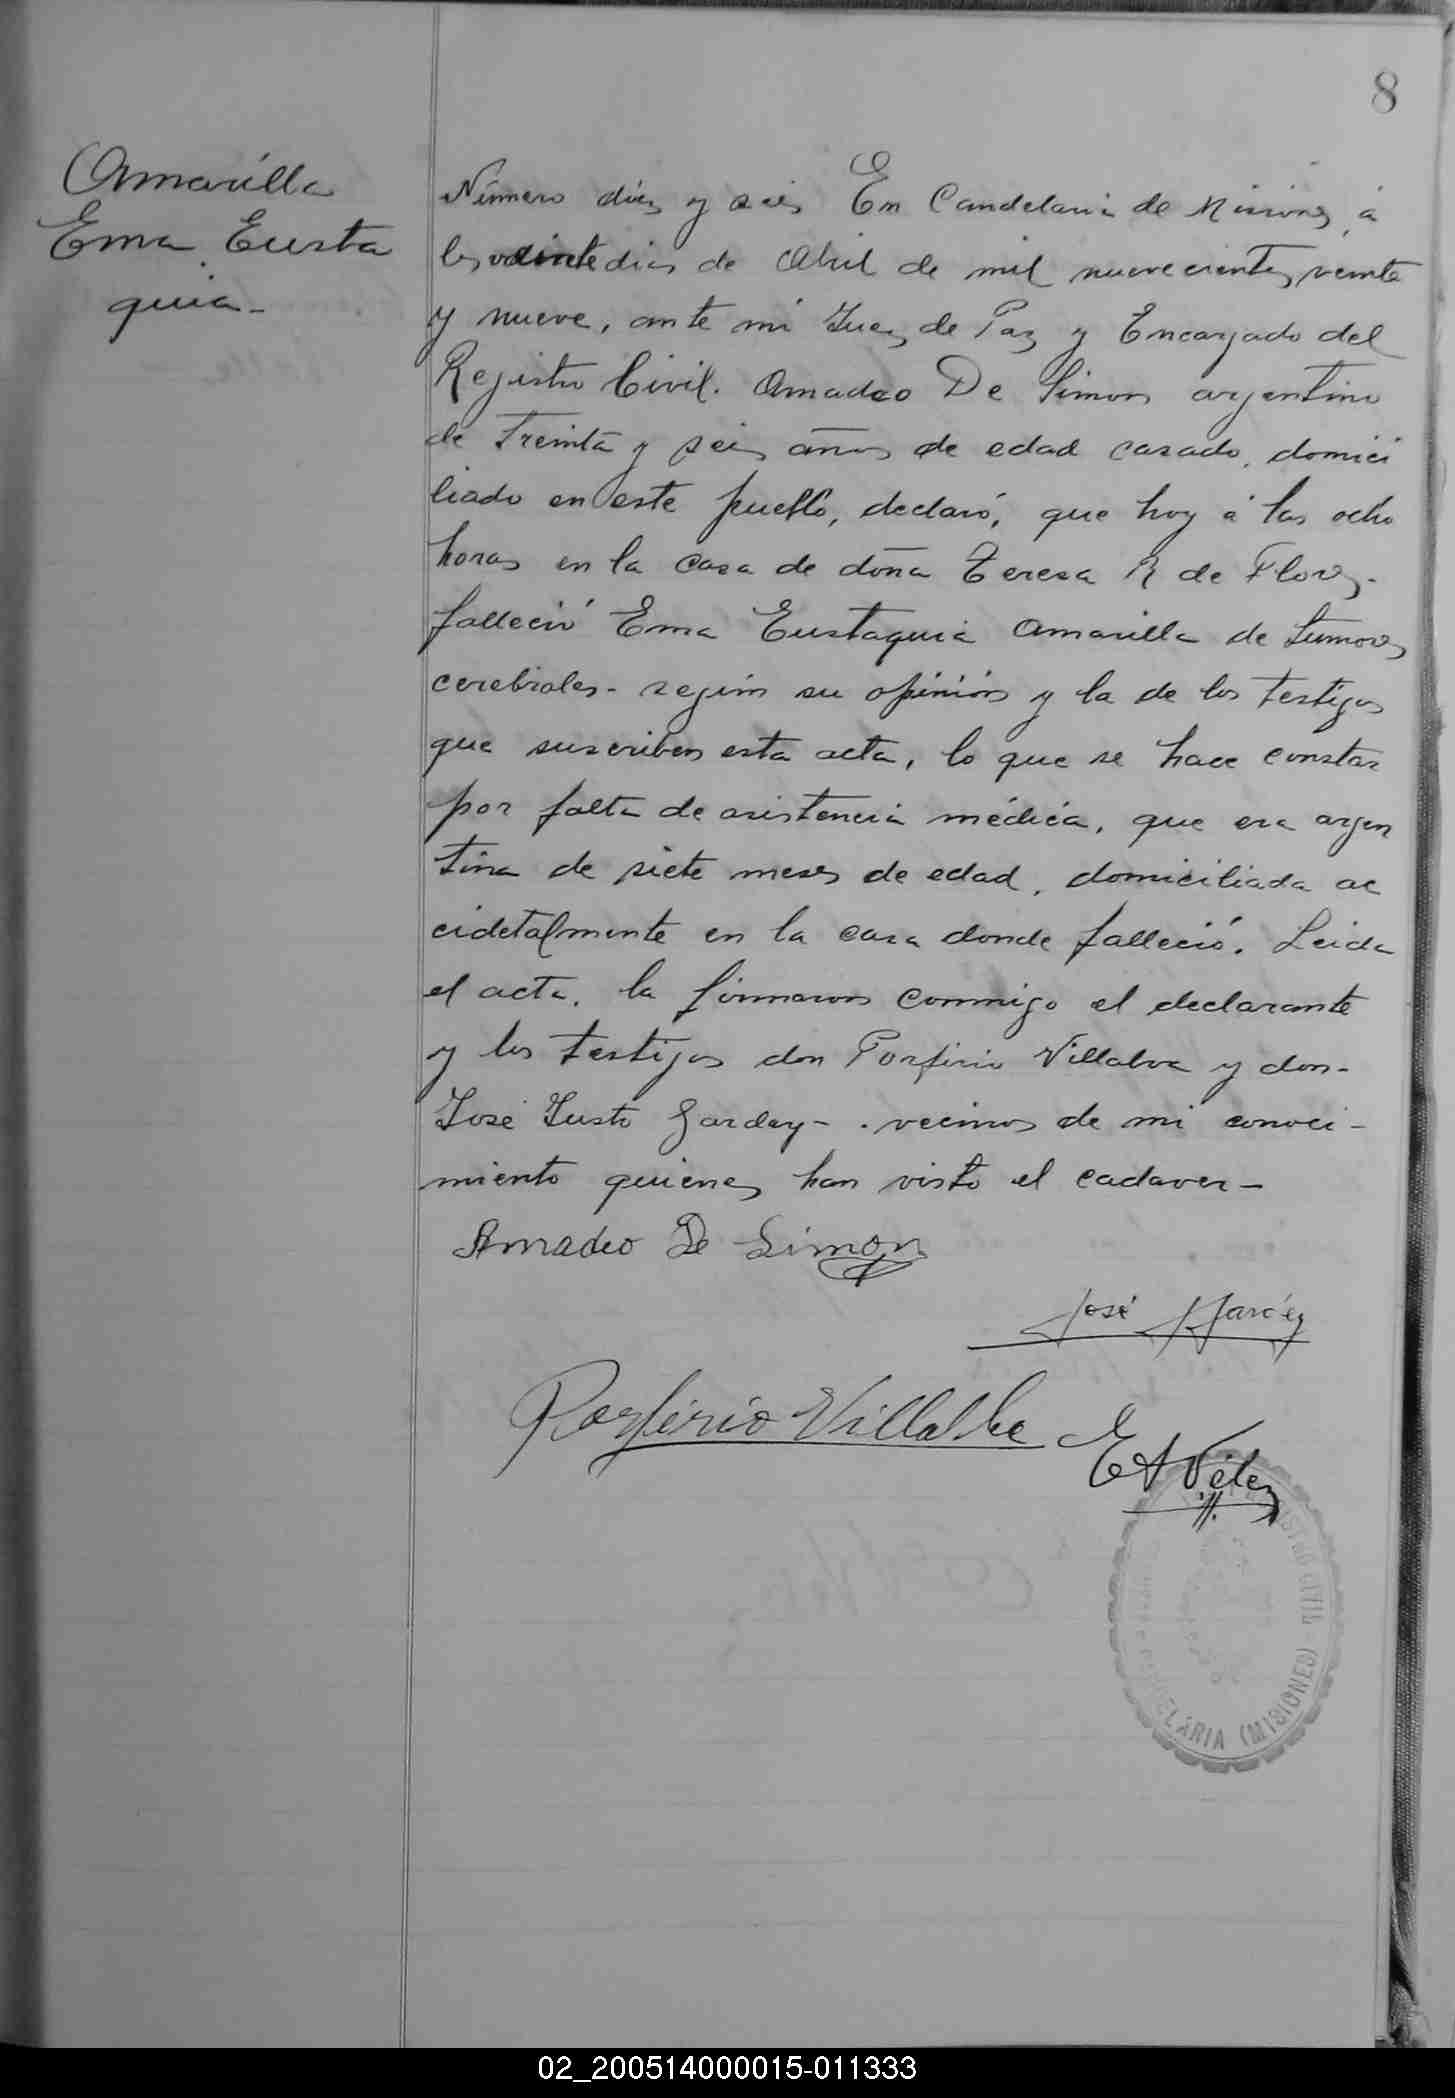 8
Amarilla
Ema Eusta
quia-
Número diez y seis En Candelaria de Misiones, á
los veinte dias de Abril de mil nuevecientos veinte
y nueve, ante mi Juez de Paz y Encargado del
Registro Civil. Amadeo De Simon argentino
de treinta y seis años de edad casado, domici
liado en este pueblo, declaró, que hoy á las ocho
horas en la casa de doña Teresa R de Flores-
falleció Ema Eustaquia Amarilla de tumores
cerebrales- según su opinión y la de los testigos
que suscriben esta acta, lo que se hace constar
por falta de asistencia médica, que era argen
tina de siete meses de edad, domiciliada ac
cidetalmente en la casa donde falleció. Leida
el acta, la firmaron conmigo el declarante
y los testigos don Porfirio Villalva y don-
José Justo Garday-. vecinos de mi conoci-
miento quienes han visto el cadaver-
Amadeo De Simon
José Gardey
Porfirio Villalba
E A Vélez
REGISTRO CIVIL
CANDELARIA (MISIONES)
02_200514000015-011333